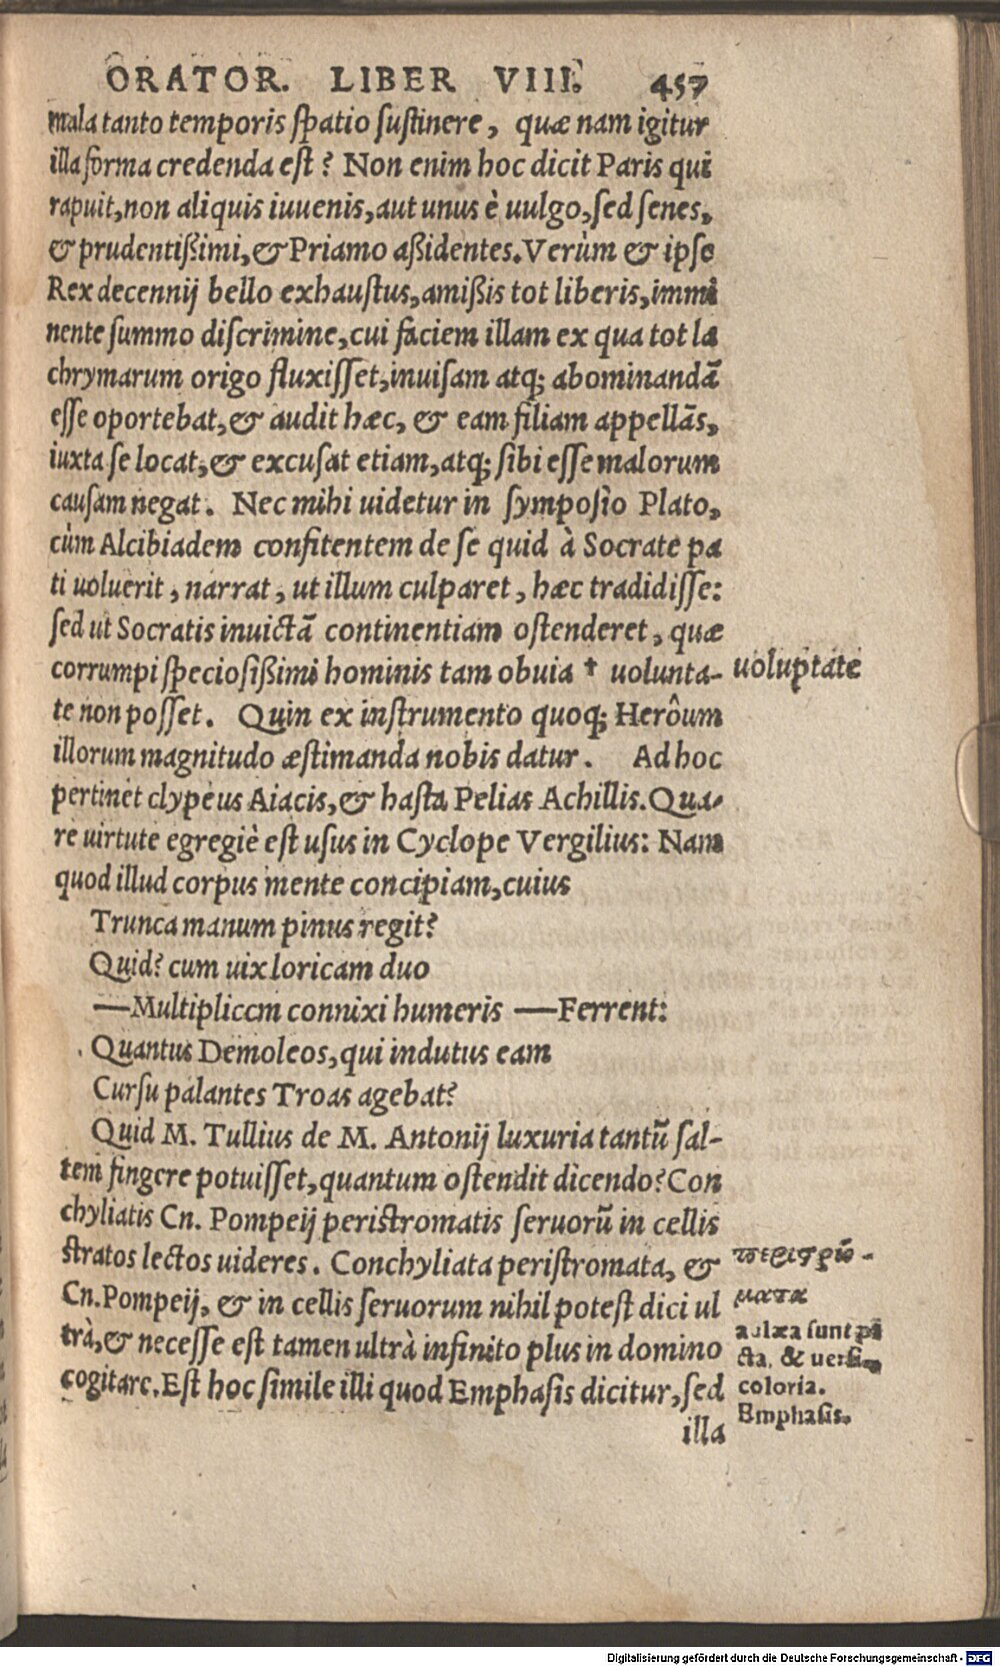 ORATOR. LIBER VIII. 457
mala tanto temporis spatio sustinere, quæ nam igitur
illa forma credenda est? Non enim hoc dicit Paris qui
rapuit, non aliquis iuuenis, aut unus è uulgo, sed senes,
& prudentißimi, & Priamo aßidentes. Verùm & ipse
Rex decennij bello exhaustus, amißis tot liberis, immi
nente summo discrimine, cui faciem illam ex qua tot la
chrymarum origo fluxisset, inuisam atq; abominandã
esse oportebat, & audit hæc, & eam filiam appellãs,
iuxta se locat, & excusat etiam, atq; sibi esse malorum
causam negat. Nec mihi uidetur in symposio Plato,
cùm Alcibiadem confitentem de se quid à Socrate pa
ti uoluerit, narrat, ut illum culparet, hæc tradidisse:
sed ut Socratis inuictã continentiam ostenderet, quæ
corrumpi speciosißimi hominis tam obuia † uolunta- uoluptate
te non posset. Quin ex instrumento quoq; Herôum
illorum magnitudo æstimanda nobis datur. Ad hoc
pertinet clypeus Aiacis, & hasta Pelias Achillis. Qua-
re uirtute egregiè est usus in Cyclope Vergilius: Nam
quod illud corpus mente concipiam, cuius
Trunca manum pinus regit?
Quid? cum uix loricam duo
—Multiplicem connixi humeris —Ferrent:
Quantus Demoleos, qui indutus eam
Cursu palantes Troas agebat?
Quid M. Tullius de M. Antonij luxuria tantũ sal-
tem fingere potuisset, quantum ostendit dicendo? Con
chyliatis Cn. Pompeij peristromatis seruorũ in cellis
stratos lectos uideres. Conchyliata peristromata, &
Cn. Pompeij, & in cellis seruorum nihil potest dici ul
trà, & necesse est tamen ultrà infinito plus in domino
cogitare. Est hoc simile illi quod Emphasis dicitur, sed
illa
περιστρώ-
ματα
aulæa sunt pi
cta, & uersi-
coloria.
Emphasis.
Digitalisierung gefördert durch die Deutsche Forschungsgemeinschaft - DFG